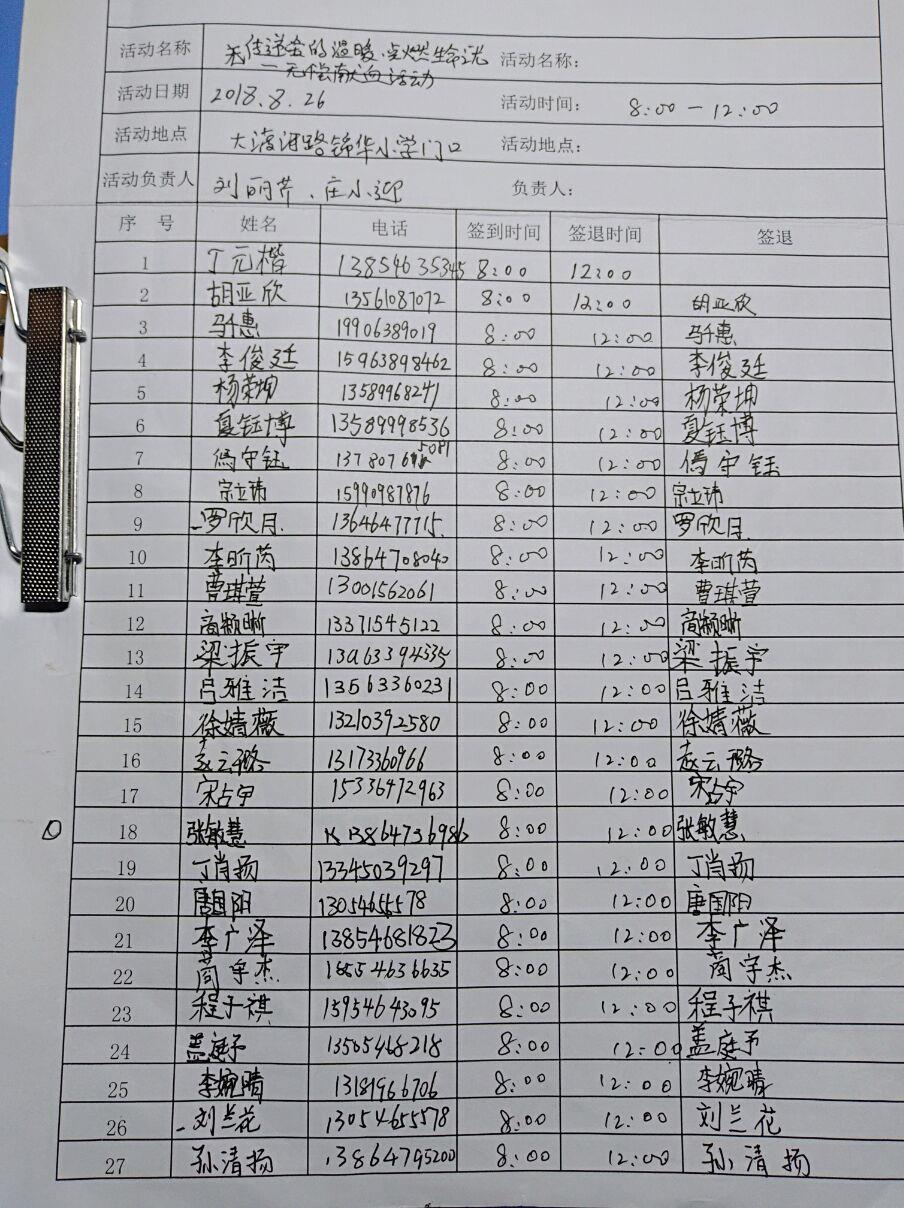 活动名称 传递爱的温暖,点燃生命之光 活动名称：
一无偿献血活动
活动日期 2018.8.26 活动时间： 8:00 — 12:00
活动地点 大渡河路锦华小学门口 活动地点：
活动负责人 刘丽芹、庄小迎 负责人：
序 号 姓名 电话 签到时间 签退时间 签退
1 丁元楷 13854635345 8:00 12:00
2 胡亚欣 13561087072 8:00 12:00 胡亚欣
3 马千惠 19906389019 8:00 12:00 马千惠
4 李俊廷 15963898462 8:00 12:00 李俊廷
5 杨荣坤 13589968241 8:00 12:00 杨荣坤
6 夏钰博 13589998536 8:00 12:00 夏钰博
7 冯守钰 8:00 12:00 冯守钰
8 宗立玮 15990987876 8:00 12:00 宗立玮
9 罗欣月 13646477715 8:00 12:00 罗欣月
10 李昕芮 13864708040 8:00 12:00 李昕芮
11 曹琪萱 13001562061 8:00 12:00 曹琪萱
12 高颖晰 13371545122 8:00 12:00 高颖晰
13 梁振宇 8:00 12:00 梁振宇
14 吕雅洁 13563360231 8:00 12:00 吕雅洁
15 徐婧薇 13210392580 8:00 12:00 徐婧薇
16 赵云璐 13173360966 8:00 12:00 赵云璐
17 宋占宇 15336472963 8:00 12:00 宋占宇
18 张敏慧 13864756986 8:00 12:00 张敏慧
19 丁肖扬 13345039297 8:00 12:00 丁肖扬
20 唐国阳 8:00 12:00 唐国阳
21 李广泽 13854681823 8:00 12:00 李广泽
22 蔺宇杰 18554636635 8:00 12:00 蔺宇杰
23 程子祺 15954643095 8:00 12:00 程子祺
24 盖庭予 13505468218 8:00 12:00 盖庭予
25 李婉晴 13181966706 8:00 12:00 李婉晴
26 刘兰花 13054655578 8:00 12:00 刘兰花
27 孙清扬 13864795200 8:00 12:00 孙清扬